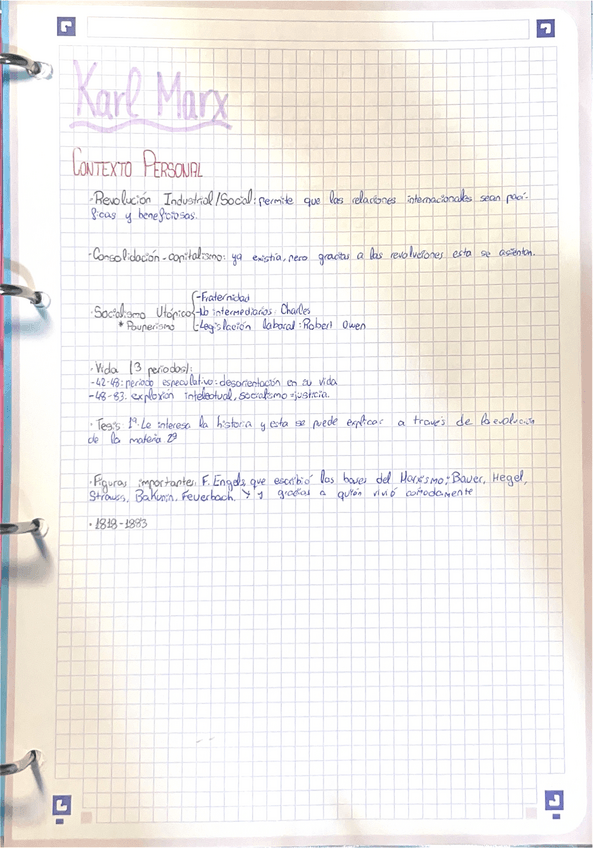 Karl Marx
CONTEXTO PERSONAL
·Revolución Industrial/Social: permite que las relaciones internacionales sean pací-
ficas y beneficiosas.
·Consolidación-capitalismo: ya existía, pero gracias a las revoluciones esta se asientan.
-Fraternidad
·Socialismo Utópico -No intermediarios: Charles
*Pauperismo -Legislación laboral: Robert Owen
·Vida (3 periodos):
-42-48: periodo especulativo: desorientación en su vida
-48-83: explosión intelectual, socialismo=justicia.
·Tesis 1ª Le interesa la historia y esta se puede explicar a través de la evolución
de la materia 2ª
·Figuras importantes: F. Engels que escribió las bases del Marxismo; Bauer, Hegel,
Strauss, Bakunin, Feuerbach. y gracias a quién vivió comodamente
·1818-1883